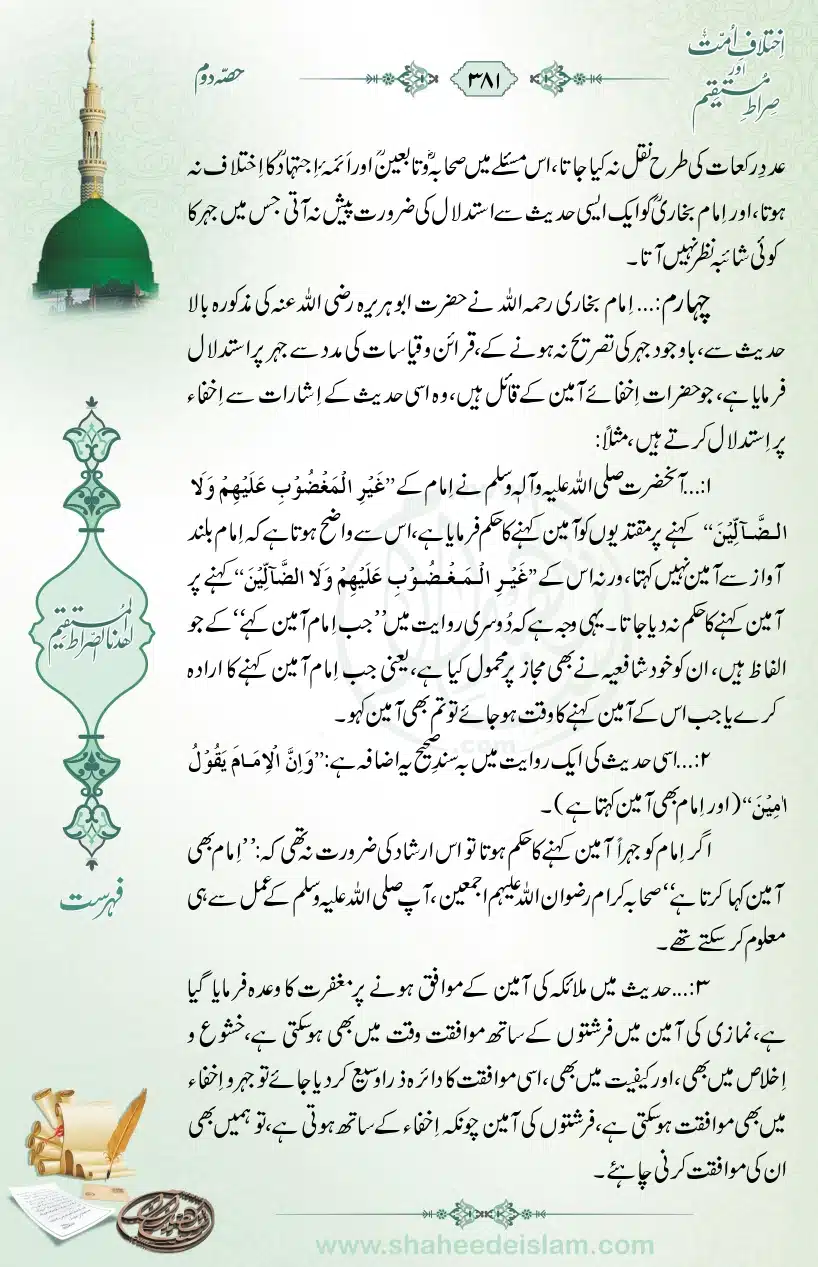 اِختلافِ اُمّت
اور
صِراطِ مُستقیم
۳۸۱
حصّہ دوم
عددِ رکعات کی طرح نقل نہ کیا جاتا، اس مسئلے میں صحابہؓ و تابعینؒ اور اَئمہٴ اِجتہادؒ کا اِختلاف نہ
ہوتا، اور اِمام بخاریؒ کو ایک ایسی حدیث سے استدلال کی ضرورت پیش نہ آتی جس میں جہر کا
کوئی شائبہ نظر نہیں آتا۔
چہارم:... اِمام بخاری رحمہ اللہ نے حضرت ابوہریرہ رضی اللہ عنہ کی مذکورہ بالا
حدیث سے، باوجود جہر کی تصریح نہ ہونے کے، قرائن و قیاسات کی مدد سے جہر پر استدلال
فرمایا ہے، جو حضرات اِخفائے آمین کے قائل ہیں، وہ اسی حدیث کے اِشارات سے اِخفاء
پر اِستدلال کرتے ہیں، مثلاً:
۱:...آنحضرت صلی اللہ علیہ وآلہٖ وسلم نے اِمام کے ”غَیْرِ الْمَغْضُوْبِ عَلَیْھِمْ وَلَا
الضَّآلِّیْنَ“ کہنے پر مقتدیوں کو آمین کہنے کا حکم فرمایا ہے، اس سے واضح ہوتا ہے کہ اِمام بلند
آواز سے آمین نہیں کہتا، ورنہ اس کے ”غَیْرِ الْمَغْضُوْبِ عَلَیْھِمْ وَلَا الضَّآلِّیْنَ“ کہنے پر
آمین کہنے کا حکم نہ دیا جاتا۔ یہی وجہ ہے کہ دُوسری روایت میں ”جب اِمام آمین کہے“ کے جو
الفاظ ہیں، ان کو خود شافعیہ نے بھی مجاز پر محمول کیا ہے، یعنی جب اِمام آمین کہنے کا ارادہ
کرے یا جب اس کے آمین کہنے کا وقت ہو جائے تو تم بھی آمین کہو۔
۲:...اسی حدیث کی ایک روایت میں بہ سندِ صحیح یہ اضافہ ہے: ”وَاِنَّ الْاِمَامَ یَقُوْلُ
اٰمِیْنَ“ (اور اِمام بھی آمین کہتا ہے)۔
اگر اِمام کو جہراً آمین کہنے کا حکم ہوتا تو اس ارشاد کی ضرورت نہ تھی کہ: ”اِمام بھی
آمین کہا کرتا ہے“ صحابہ کرام رضوان اللہ علیہم اجمعین، آپ صلی اللہ علیہ وسلم کے عمل سے ہی
معلوم کرسکتے تھے۔
۳:...حدیث میں ملائکہ کی آمین کے موافق ہونے پر مغفرت کا وعدہ فرمایا گیا
ہے، نمازی کی آمین میں فرشتوں کے ساتھ موافقت وقت میں بھی ہوسکتی ہے، خشوع و
اِخلاص میں بھی، اور کیفیت میں بھی، اسی موافقت کا دائرہ ذرا وسیع کردیا جائے تو جہر و اِخفاء
میں بھی موافقت ہوسکتی ہے، فرشتوں کی آمین چونکہ اِخفاء کے ساتھ ہوتی ہے، تو ہمیں بھی
ان کی موافقت کرنی چاہئے۔
اھدنا الصراط المستقیم
فہرست
www.shaheedeislam.com